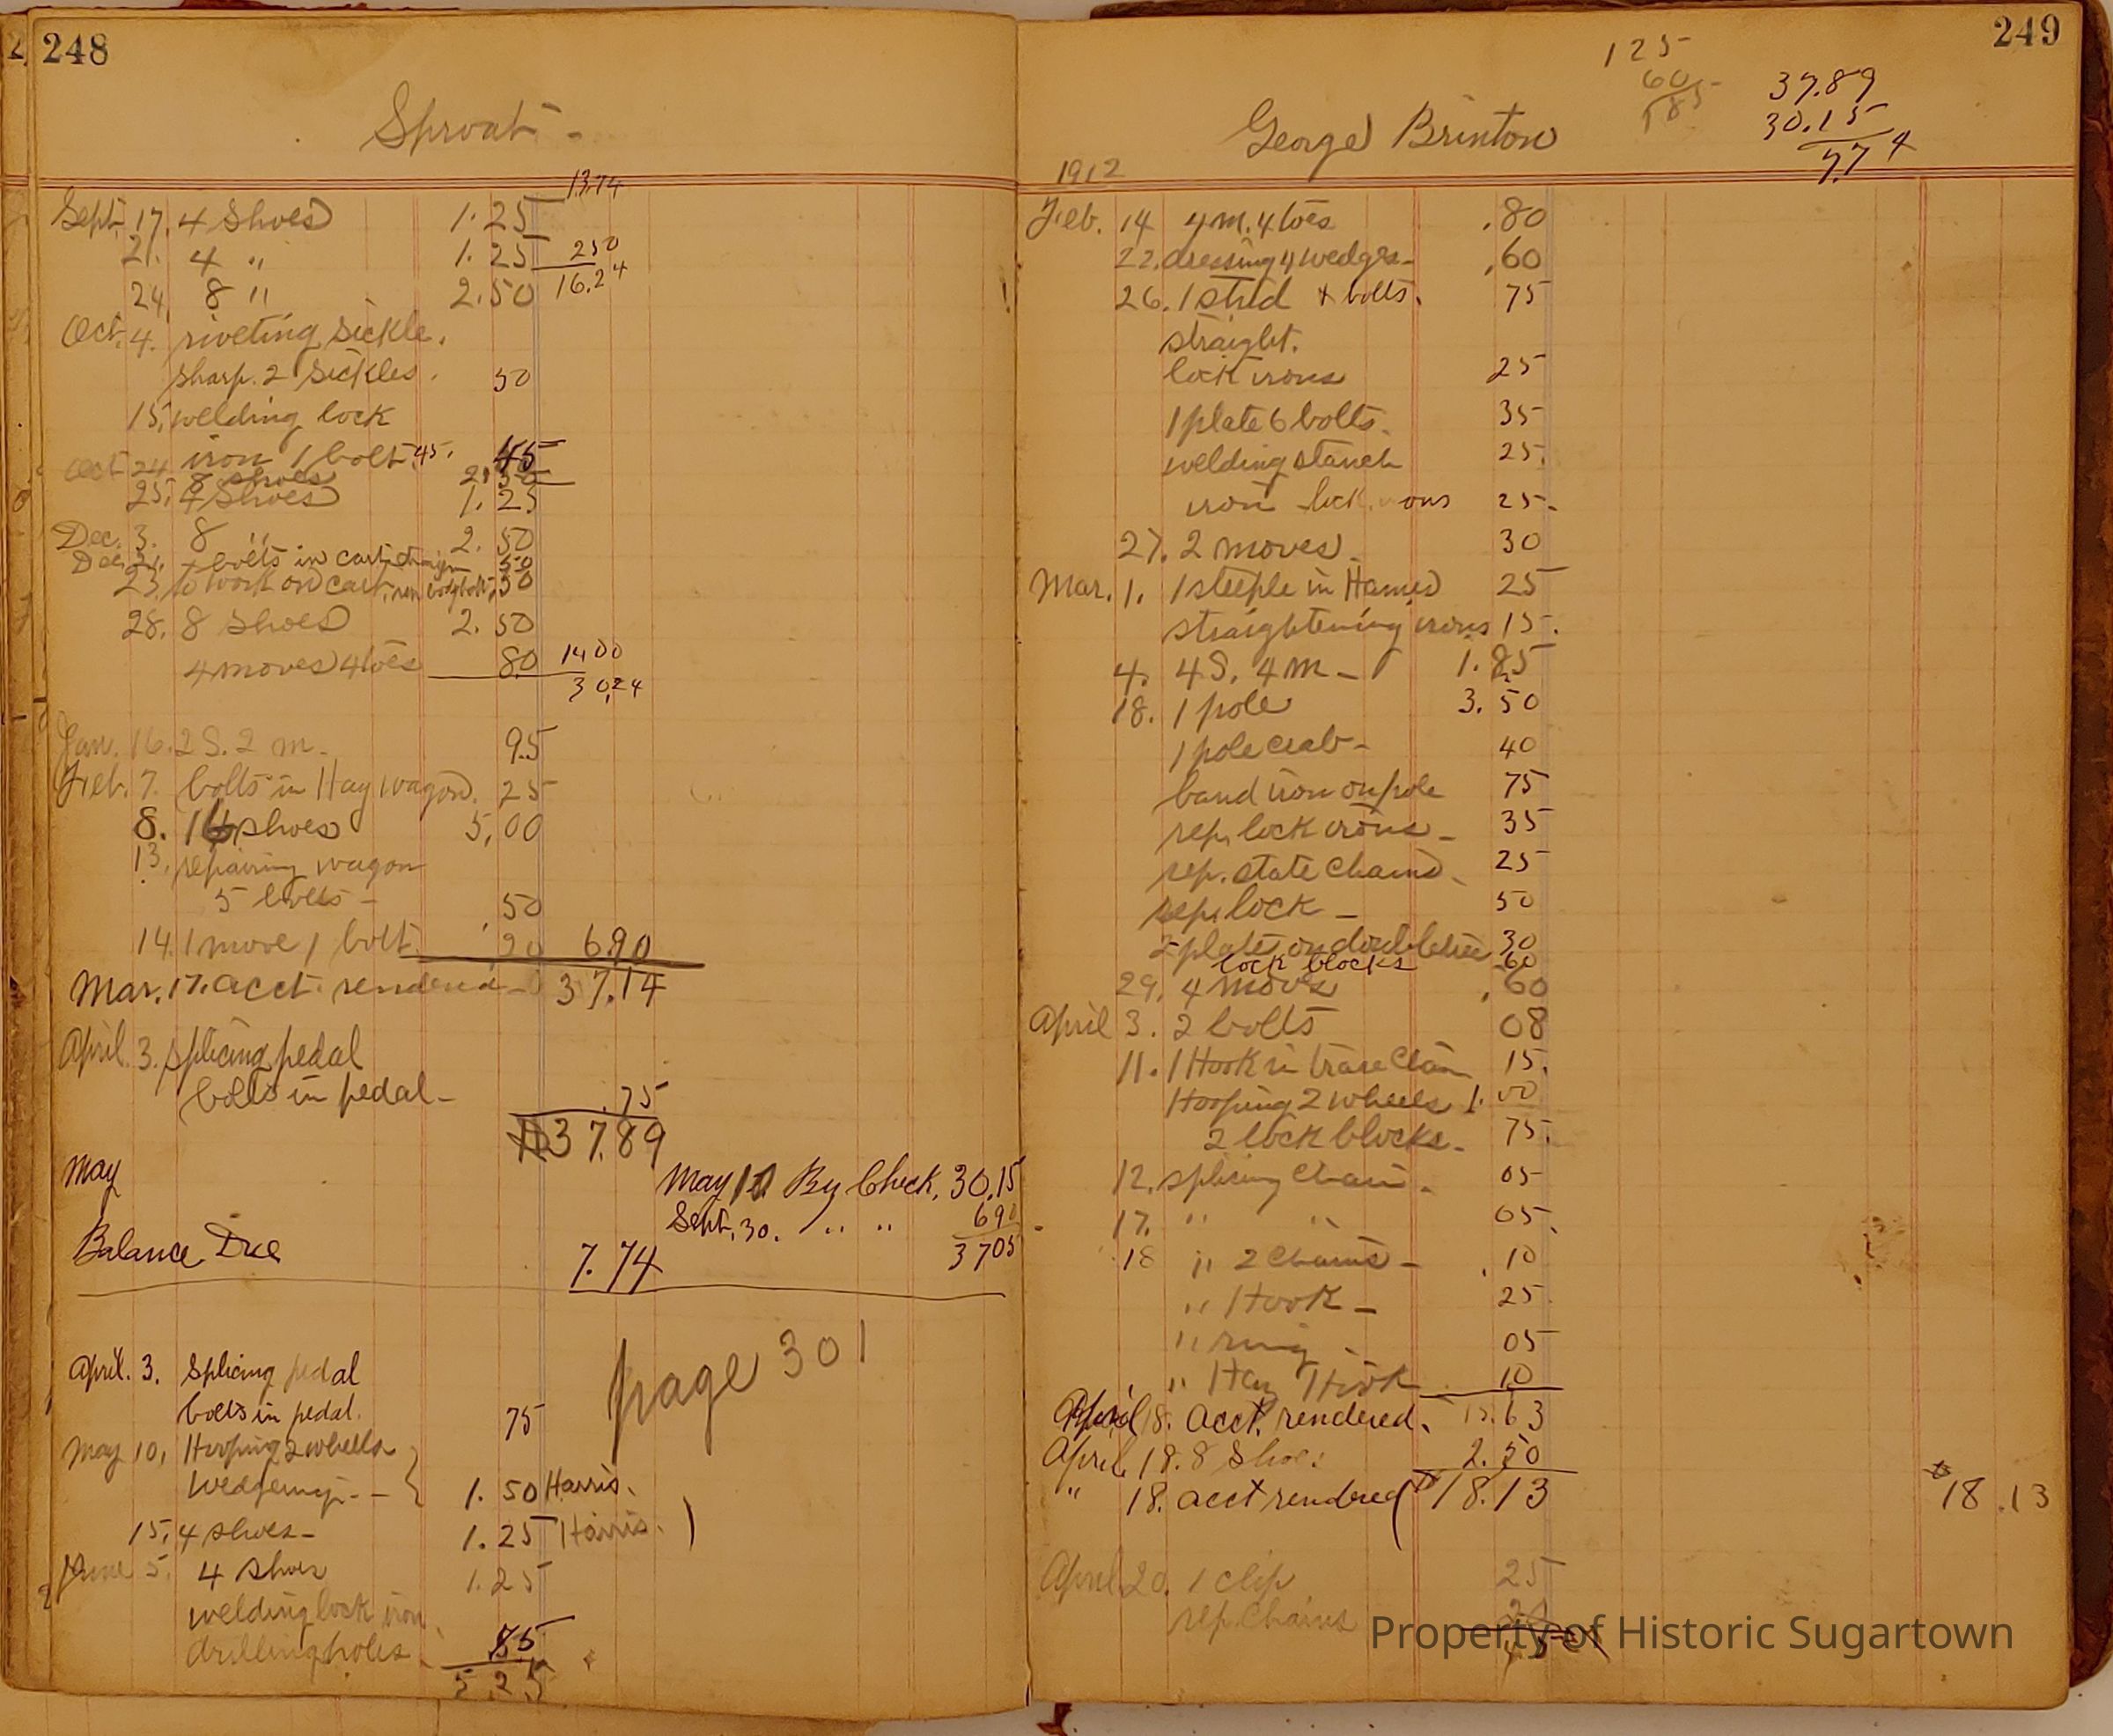 248
Sproat -
13.74
Sept. 17. 4 Shoes 1.25
21. 4 " 1.25 250
24. 8 " 2.50 16.24
Oct. 4. riveting sickle.
sharp. 2 sickles. 50
15. welding lock
iron 1 bolt. 45. 45
Oct 24 8 shoes 2.50
25. 4 Shoes 1.25
Dec. 3. 8 " 2.50
Dec. 21. bolts in cart 50
23. to work on cart, 50
28. 8 Shoes 2.50
4 moves 4 toes 80 1400
30.24
Jan. 16. 2 S. 2 m. 95
Feb. 7. bolts in Hay wagon. 25
8. 16 shoes 5.00
13. repairing wagon
5 bolts - 50
14. 1 move 1 bolt 20 690
Mar. 17. acct. rendered - 37.14
April 3. splicing pedal
bolts in pedal - .75
37.89
May
May 10 By Check. 30.15
Sept. 30. " " 690
Balance Due 7.74 3705
April. 3. Splicing pedal
bolts in pedal. 75
page 301
May 10, Hooping 2 wheels
wedgeing - - 1.50 Harris.
15, 4 shoes - 1.25 Harris.
June 5. 4 shoes 1.25
welding lock iron
drilling holes. 85
5 25
249
125
60
185
37.89
30.15
7.74
George Brinton
1912
Feb. 14 4 m. 4 toes .80
22. dressing 4 wedges - .60
26. 1 stud & bolts. 75
straight.
lock irons 25
1 plate 6 bolts. 35
welding stanch 25.
iron lock irons 25.
27. 2 moves. 30
Mar. 1. 1 steeple in Hames 25
straightening irons 15.
4. 4 S. 4 m - 1.85
18. 1 pole 3.50
1 pole crab - 40
band iron on pole 75
rep. lock irons - 35
rep. state chains. 25
rep. lock - 50
2 plates on doubletree 30
lock blocks 60
29. 4 moves .60
April 3. 2 bolts 08
11. 1 Hook in trace chain 15.
Hooping 2 wheels 1.00
2 lock blocks - 75.
12. splicing chain. 05
17. " " 05.
18 " 2 chains - .10
" Hook - 25
" ring - 05
" Hay Hook 10
April 18. acct. rendered. 15.63
April 18. 8 Shoes 2.50
" 18. acct rendered 18.13 18.13
April 20. 1 clip 25
rep. chains
Property of Historic Sugartown